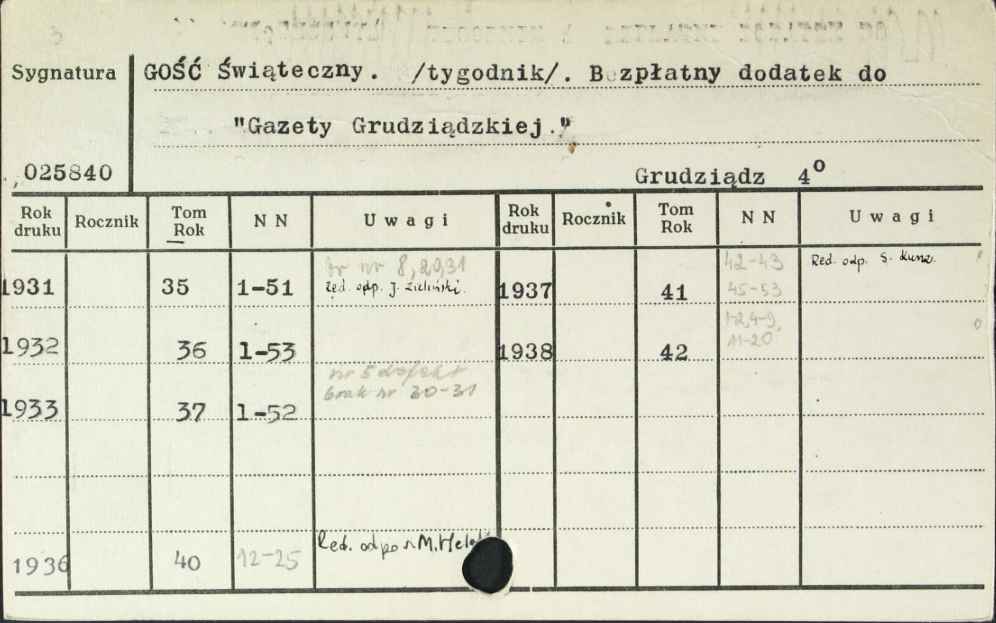 Sygnatura GOŚĆ Świąteczny. /tygodnik/. Bezpłatny dodatek do
"Gazety Grudziądzkiej."
025840 Grudziądz 4º
Rok druku Rocznik Tom Rok N N Uwagi Rok druku Rocznik Tom Rok N N Uwagi
nr 8, 29, 31 42-43 Red. odp. S. Kunz.
1931 35 1-51 Red. odp. J. Zieliński. 1937 41 45-53
1-2, 4-9,
1932 36 1-53 1938 42 11-20
nr 5 defekt
brak nr 30-31
1933 37 1-52
Red. odp.
1936 40 12-25